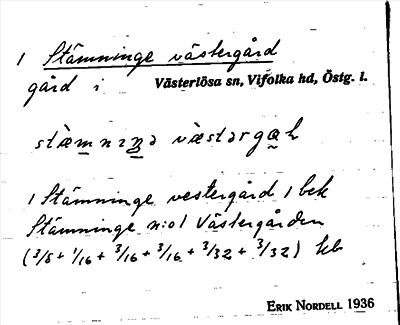 1 Stämninge västergård
gård i Västerlösa sn, Vifolka hd, Östg. l.
västərgɑh
1 Stämninge vestergård 1 bek
Stämninge n:o1 Västergården
(3/8 + 1/16 + 3/16 + 3/16 + 3/32 + 3/32) kb
ERIK NORDELL 1936